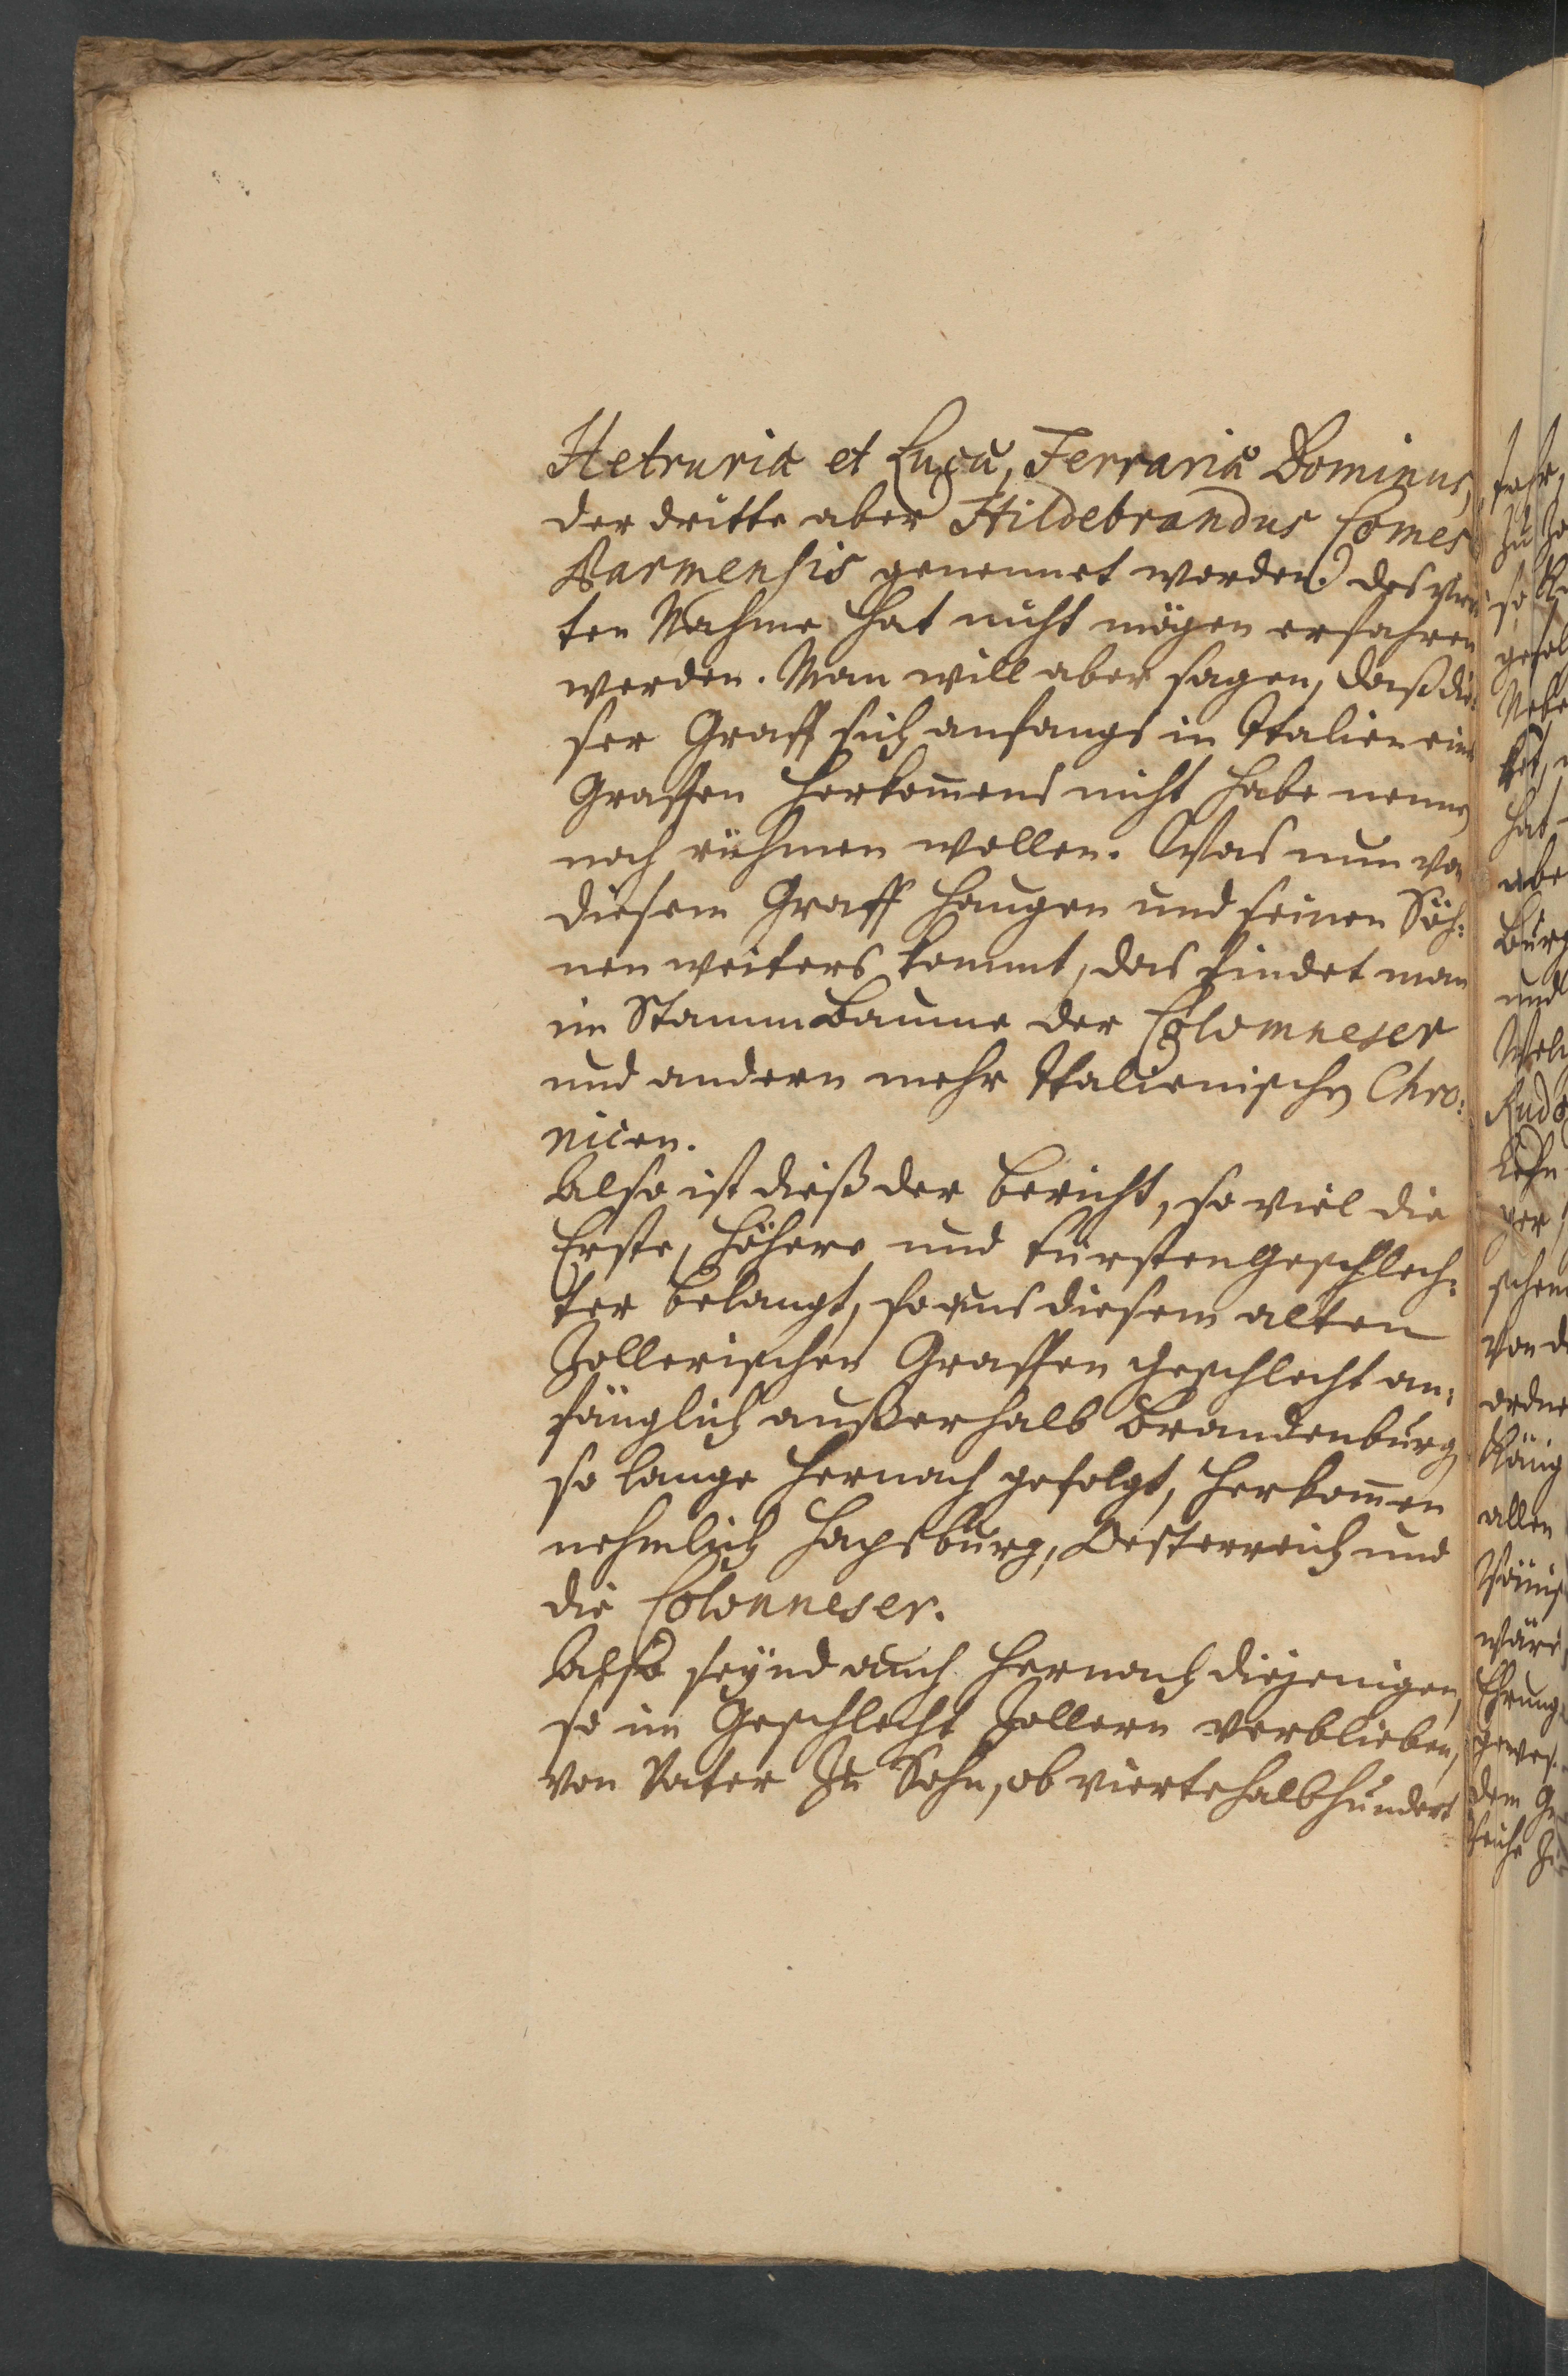 Hetruriæ et Lucæ, Ferrariæ Dominus,
der dritte aber Hildebrandus Comes
Parmensis genennet worden. des vier¬
ten Nahme hat nicht mögen erfahren
werden. Man will aber sagen, daß die¬
ser Graff sich anfangs in Italien eins
Graffen Herkom̃ens nicht habe nennen
noch rühmen wollen. Was nun von
diesem Graff Haugen und seinen Söh¬
nen weiters kommt, das findet man
im Stammbaume der Colomneser
und andern mehr Italienischen Chro¬
nicen.
Also ist dieß der Bericht, so viel die
Erste, höhere und Fürsten Geschlech¬
ter belangt, so aus diesem alten
Zollerischen Graffen Geschlecht an¬
fänglich außerhalb Brandenburg
so lange hernach gefolgt, herkom̃en
nehmlich Hapsburg, Oesterreich und
die Colonneser.
Also seynd auch hernach diejenigen,
so im Geschlecht Zollern verblieben,
von Vater zu Sohn, ob viertehalbhundert